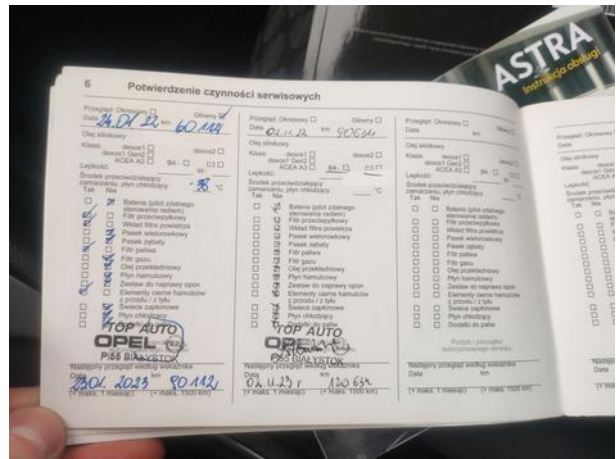 ASTRA
Instrukcja obsługi
6 Potwierdzenie czynności serwisowych
Przegląd: Okresowy Główny
Data 24.01.22 km 60112
Olej silnikowy
Klasa: dexos1 dexos2
dexos1 Gen2
ACEA A3 B4 - C3
Lepkość: W-
Środek przeciwdziałający
zamarzaniu, płyn chłodzący -38 °C
Tak Nie
Bateria (pilot zdalnego
sterowania radiem)
Filtr przeciwpyłkowy
Wkład filtra powietrza
Pasek wielorowkowy
Pasek zębaty
Filtr paliwa
Filtr gazu
Olej przekładniowy
Płyn hamulcowy
Zestaw do naprawy opon
Elementy cierne hamulców
z przodu / z tyłu
Świece zapłonowe
Płyn chłodzący
TOP AUTO
OPEL
P55 BIAŁYSTOK
Następny przegląd według wskaźnika
Data km
23.01.2023 90112
(+ maks. 1 miesiąc) (+ maks. 1500 km)
Przegląd: Okresowy Główny
Data 02.11.22 km 90634
Olej silnikowy
Klasa: dexos1 dexos2
dexos1 Gen2
ACEA A3 B4 - C3
Lepkość:
Środek przeciwdziałający
zamarzaniu, płyn chłodzący °C
Tak Nie
Bateria (pilot zdalnego
sterowania radiem)
Filtr przeciwpyłkowy
Wkład filtra powietrza
Pasek wielorowkowy
Pasek zębaty
Filtr paliwa
Filtr gazu
Olej przekładniowy
Płyn hamulcowy
Zestaw do naprawy opon
Elementy cierne hamulców
z przodu / z tyłu
Świece zapłonowe
Płyn chłodzący
Dodatki do paliw
TOP AUTO
OPEL
P55 BIAŁYSTOK
Następny przegląd według wskaźnika
Data km
02.11.23r 120634
(+ maks. 1 miesiąc) (+ maks. 1500 km)
Przegląd: Okresowy Główny
Data km
Olej silnikowy
Klasa: dexos1 dexos2
dexos1 Gen2
ACEA A3 B4 - C3
Lepkość:
Środek przeciwdziałający
zamarzaniu, płyn chłodzący °C
Tak Nie
Bateria (pilot zdalnego
sterowania radiem)
Filtr przeciwpyłkowy
Wkład filtra powietrza
Pasek wielorowkowy
Pasek zębaty
Filtr paliwa
Filtr gazu
Olej przekładniowy
Płyn hamulcowy
Zestaw do naprawy opon
Elementy cierne hamulców
z przodu / z tyłu
Świece zapłonowe
Płyn chłodzący
Dodatki do paliw
Podpis i pieczątka
autoryzowanego serwisu
Następny przegląd według wskaźnika
Data km
(+ maks. 1 miesiąc) (+ maks. 1500 km)